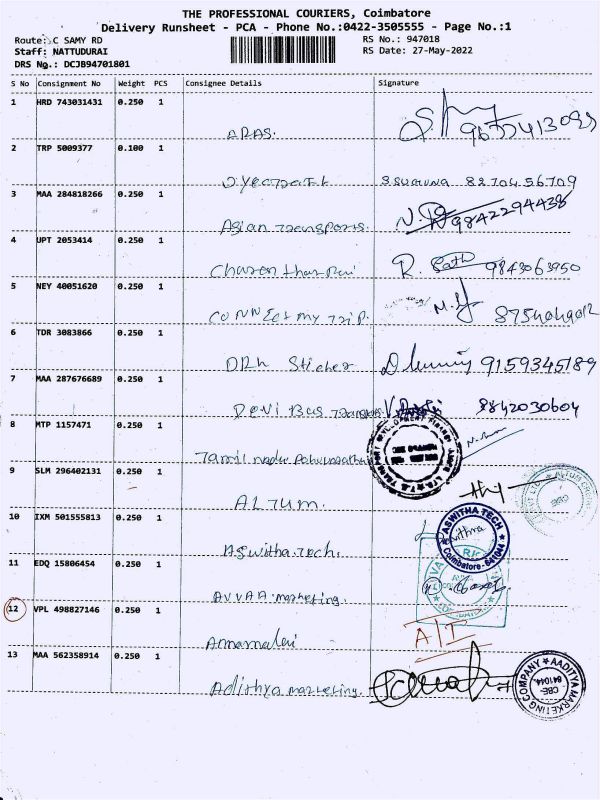 THE PROFESSIONAL COURIERS, Coimbatore
Delivery Runsheet - PCA - Phone No.:0422-3505555 - Page No.:1
Route: C SAMY RD
RS No.: 947018
Staff: NATTUDURAI
RS Date: 27-May-2022
DRS No.: DCJB94701801
S No Consignment No Weight PCS Consignee Details Signature
1 HRD 743031431 0.250 1
ARAS.
2 TRP 5009377 0.100 1
SSUGUNA 8270456709
3 MAA 284818266 0.250 1
Asian Transports. 9842294438
4 UPT 2053414 0.250 1
R. 9843063950
5 NEY 40051620 0.250 1
CONNECT my TRIP.
6 TDR 3083866 0.250 1
DRK Sticker 9159345189
7 MAA 287676689 0.250 1
Devi Bus Transport 8842030604
8 MTP 1157471 0.250 1
Tamil nadu
9 SLM 296402131 0.250 1
ALTUM.
10 IXM 501555813 0.250 1
Aswitha.Tech.
ASWITHA TECH
Coimbatore - 641044
11 EDQ 15806454 0.250 1
AVVAA marketing.
12 VPL 498827146 0.250 1
Annamalai A/T
13 MAA 562358914 0.250 1
Adithya marketing.
AADITYA MARKETING COMPANY
CBE-
641044.